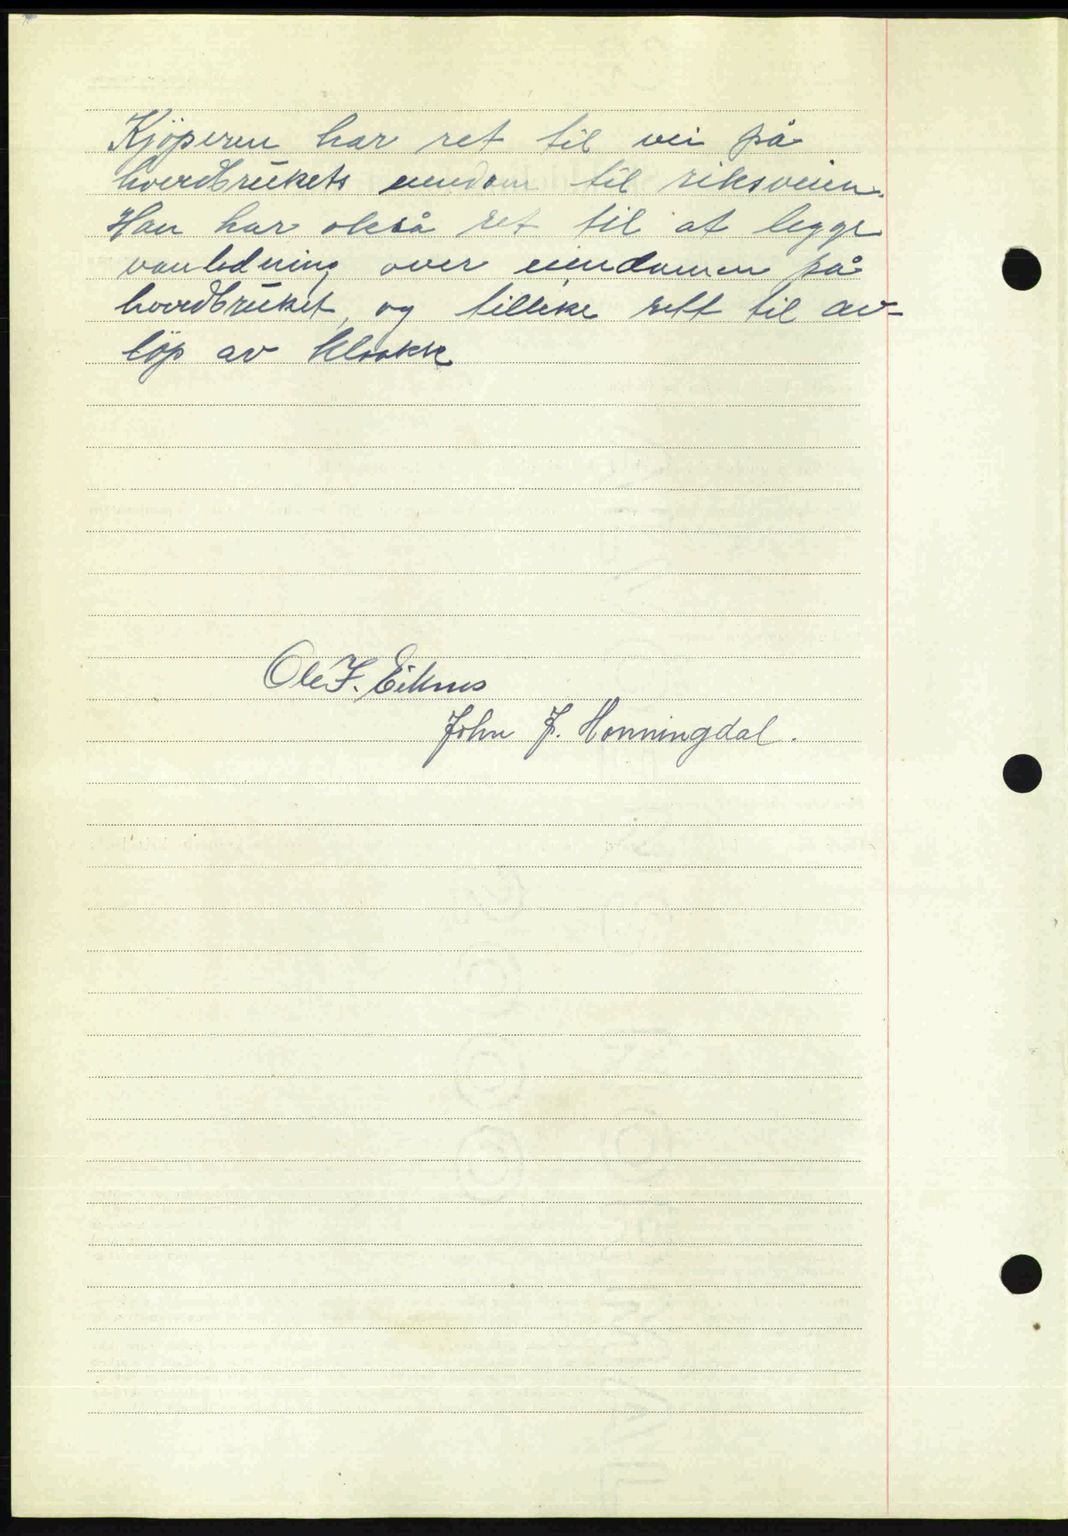 Kjöperen har ret til vei på
hovedbrukets eiendom til riksveien.
Han har også ret til at legge
vanledning over eiendomen på
hovedbruket, og tillike rett til av-
löp av kloakk
Ole F. Eiknes
John J. Honningdal.